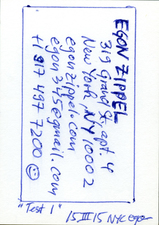 EGON ZIPPEL
319 Grand St. apt 4
New York, NY 10002
egonzippel.com
egon345@gmail.com
+1 917 497 7200 ☺
"Test 1"
15 III 15 NYC egon